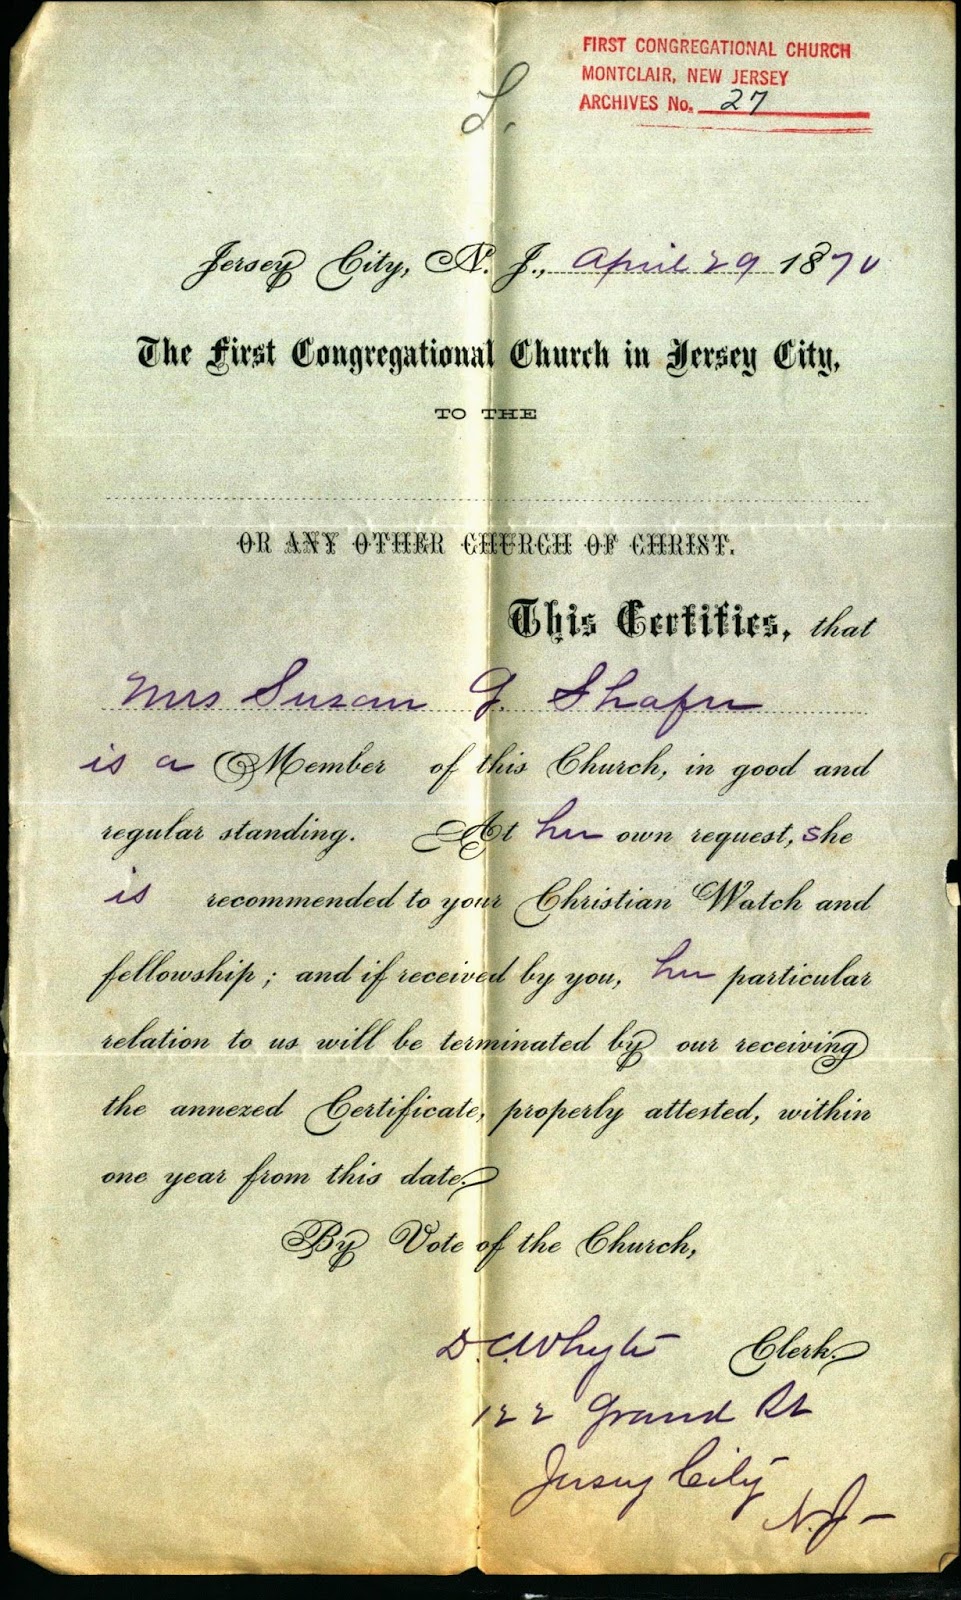 FIRST CONGREGATIONAL CHURCH
MONTCLAIR, NEW JERSEY
ARCHIVES No. 27
L.
Jersey City, N. J., April 29 1870
The First Congregational Church in Jersey City,
TO THE
OR ANY OTHER CHURCH OF CHRIST.
This Certifies, that
Mrs Susan G. Shafer
is a Member of this Church, in good and
regular standing. At her own request, she
is recommended to your Christian Watch and
fellowship; and if received by you, her particular
relation to us will be terminated by our receiving
the annexed Certificate, properly attested, within
one year from this date.
By Vote of the Church,
D. C. Whyte Clerk.
122 Grand St
Jersey City
N.J-